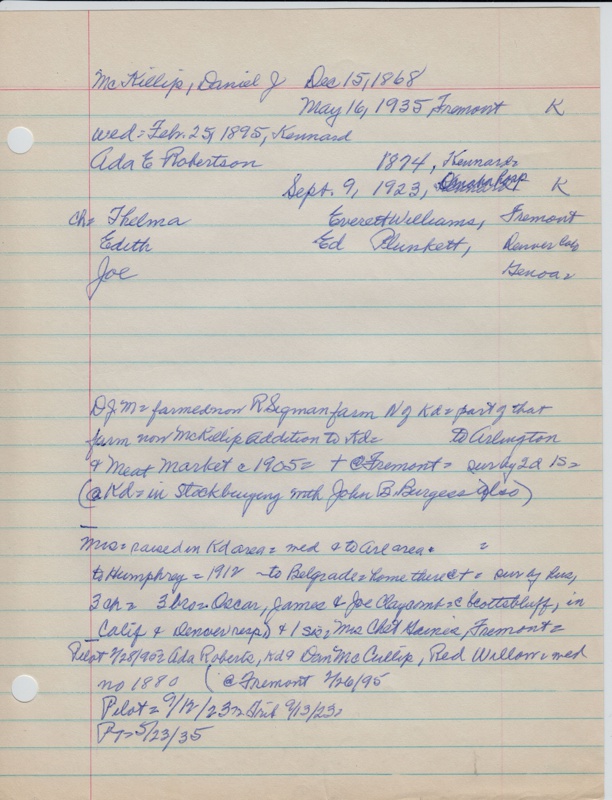 McKillip, Daniel J Dec 15, 1868
May 16, 1935, Fremont K
wed = Feb. 25, 1895, Kennard
Ada E Robertson 1874, Kennard =
Sept. 9, 1923, Omaha Hosp K
ch = Thelma Everett Williams, Fremont
Edith Ed Plunkett, Denver Colo
Joe Genoa =
DJM = farmed now R Segman farm N of Kd = part of that
farm now McKillip Addition to Kd = to Arlington
& Meat Market c 1905 = + @ Fremont = sur by 2d 1s =
(@ Kd = in Stockbuying with John B. Burgess also)
Mrs = raised in Kd area = wed & to Arl area =
to Humphrey = 1912 - to Belgrade = home there et = sur by hus,
3 ch = 3 bro = Oscar, James & Joe Claycomb = @ Scottsbluff, in
Calif & Denver resp) & 1 sis = Mrs Chet Gaines, Fremont =
Pilot 2/28/95 = Ada Roberts, Kd & Dan McCullip, Red Willow = wed
no 1880 (@ Fremont 2/26/95
Pilot = 9/12/23 = Trib 9/13/23 =
PT = 5/23/35